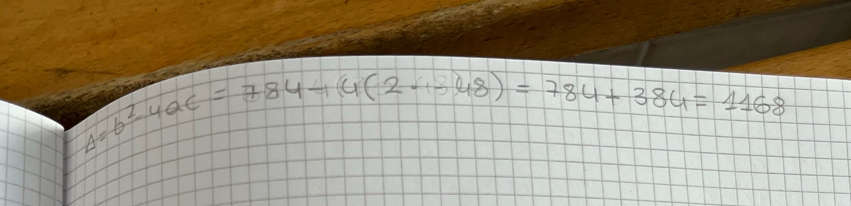 Δ=b²-4ac = 784+(4(2·48) = 784+384=1168